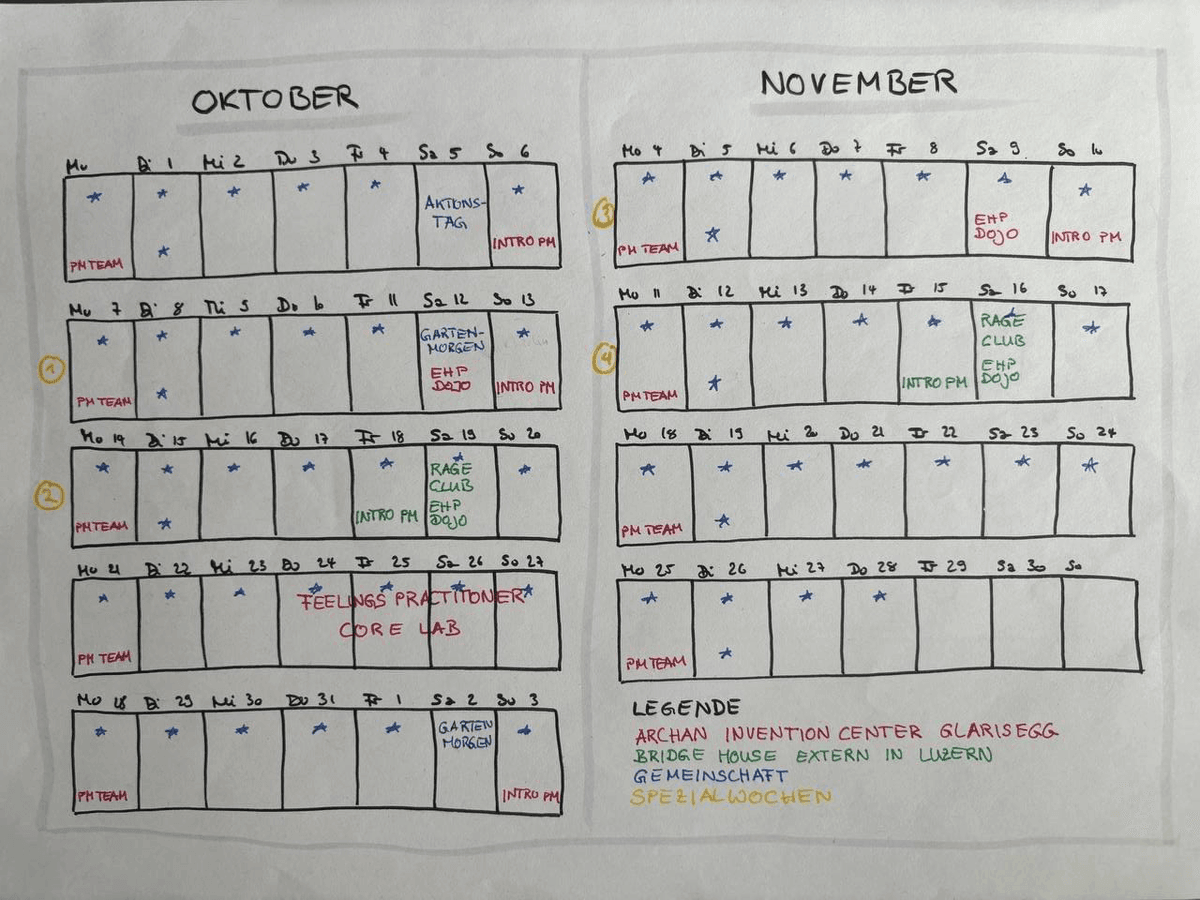 OKTOBER
Mo Di 1 Mi 2 Do 3 Fr 4 Sa 5 So 6
AKTIONS-
TAG
PM TEAM INTRO PM
Mo 7 Di 8 Mi 9 Do 10 Fr 11 Sa 12 So 13
GARTEN-
MORGEN
1
EHP
DOJO
PM TEAM INTRO PM
Mo 14 Di 15 Mi 16 Do 17 Fr 18 Sa 19 So 20
RAGE
CLUB
2
EHP
DOJO
PM TEAM INTRO PM
Mo 21 Di 22 Mi 23 Do 24 Fr 25 Sa 26 So 27
FEELINGS PRACTITONER
CORE LAB
PM TEAM
Mo 28 Di 29 Mi 30 Do 31 Fr 1 Sa 2 So 3
GARTEN
MORGEN
PM TEAM INTRO PM
NOVEMBER
Mo 4 Di 5 Mi 6 Do 7 Fr 8 Sa 9 So 10
3
EHP
DOJO
PM TEAM INTRO PM
Mo 11 Di 12 Mi 13 Do 14 Fr 15 Sa 16 So 17
RAGE
CLUB
4
EHP
DOJO
PM TEAM INTRO PM
Mo 18 Di 19 Mi 20 Do 21 Fr 22 Sa 23 So 24
PM TEAM
Mo 25 Di 26 Mi 27 Do 28 Fr 29 Sa 30 So
PM TEAM
LEGENDE
ARCHAN INVENTION CENTER GLARISEGG
BRIDGE HOUSE EXTERN IN LUZERN
GEMEINSCHAFT
SPEZIALWOCHEN